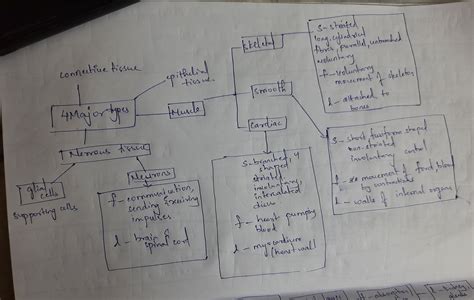 connective tissue
epithelial
tissue
4 Major types
Muscle
Skeletal
S - shaped
long, cylindrical
fibres, parallel, unbranched
voluntary
f - voluntary
movement of skeleton
l - attached to
bones
Smooth
S - short, fusiform shaped
non-striated
involuntary control
f - movement of food, blood
by contractions
l - walls of internal organs
Cardiac
S - branched, Y
shaped
involuntary,
intercalated
discs
f - heart pumping
blood
l - myocardium
(heart wall)
Nervous tissue
glial
cells
supporting cells
Neurons
f - communication,
sending & receiving
impulses
l - brain &
spinal cord